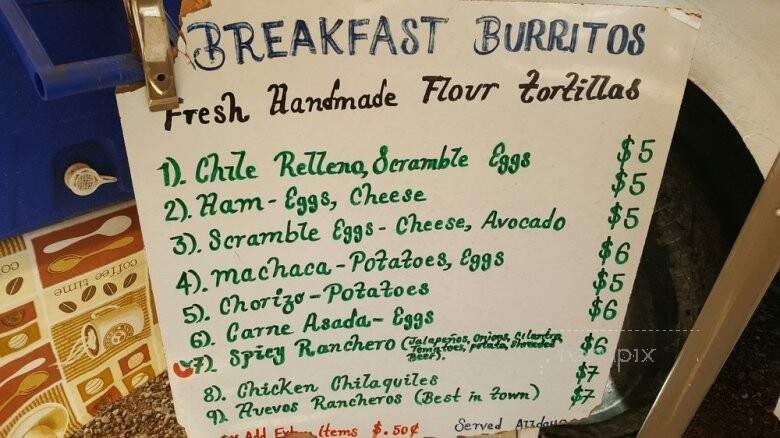 BREAKFAST BURRITOS
Fresh Handmade Flour Tortillas
1). Chile Relleno, Scramble Eggs $5
2). Ham - Eggs, Cheese $5
3). Scramble Eggs - Cheese, Avocado $5
4). Machaca - Potatoes, Eggs $6
5). Chorizo - Potatoes $5
6). Carne Asada - Eggs $6
7). Spicy Ranchero (Jalapeños, Onions, Cilantro, $6
Tomatoes, Potato, Shredded
Beef).
8). Chicken Chilaquiles $7
9). Huevos Rancheros (Best in town) $7
Add Extra Items $.50¢ Served
coffee time